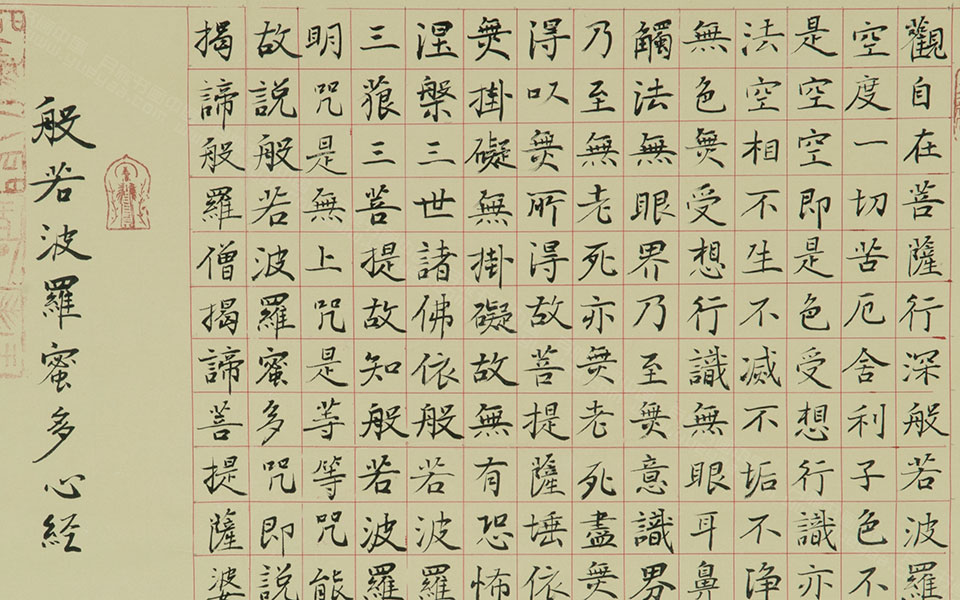 觀自在菩薩行深般若波羅
空度一切苦厄舍利子色不
是空空即是色受想行識亦
法空相不生不滅不垢不浄
無色無受想行識無眼耳鼻
觸法無眼界乃至無意識界
乃至無老死亦無老死盡無
得以無所得故菩提薩埵依
無掛礙無掛礙故無有恐怖
涅槃三世諸佛依般若波羅
三藐三菩提故知般若波羅
明咒是無上咒是等等咒能
故説般若波羅蜜多咒即説
揭諦般羅僧揭諦菩提薩婆
般若波羅蜜多心経